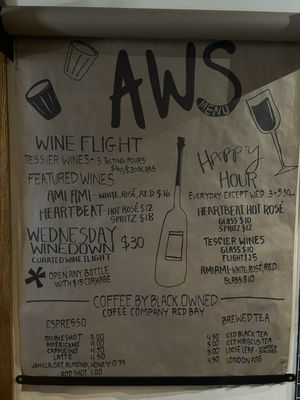 AWS
MENU
WINE FLIGHT
TESSIER WINES - 3 TASTING POURS
FEATURED WINES
AMI AMI - WHITE, ROSÉ, RED $16
HEARTBEAT - HOT ROSÉ $12
SPRITZ $18
WEDNESDAY
WINEDOWN $30
CURATED WINE FLIGHT
* OPEN ANY BOTTLE
WITH $15 CORKAGE
HAPPY
HOUR
EVERYDAY EXCEPT WED. 3-5:30
HEARTBEAT HOT ROSÉ
GLASS $10
SPRITZ $12
TESSIER WINES
GLASS $10
FLIGHT $25
AMI AMI - WHITE, ROSÉ, RED
GLASS $10
COFFEE BY BLACK OWNED
COFFEE COMPANY RED BAY
ESPRESSO
DOUBLE SHOT 3.00
AMERICANO 4.00
CAPPUCINO 4.50
LATTE 4.50
VANILLA, OAT, ALMOND, HONEY 0.75
ADD SHOT 1.00
BREWED TEA
4.50 ICED BLACK TEA
5.00 ICED HIBISCUS TEA
3.00 LOOSE LEAF -
4.50 LONDON FOG